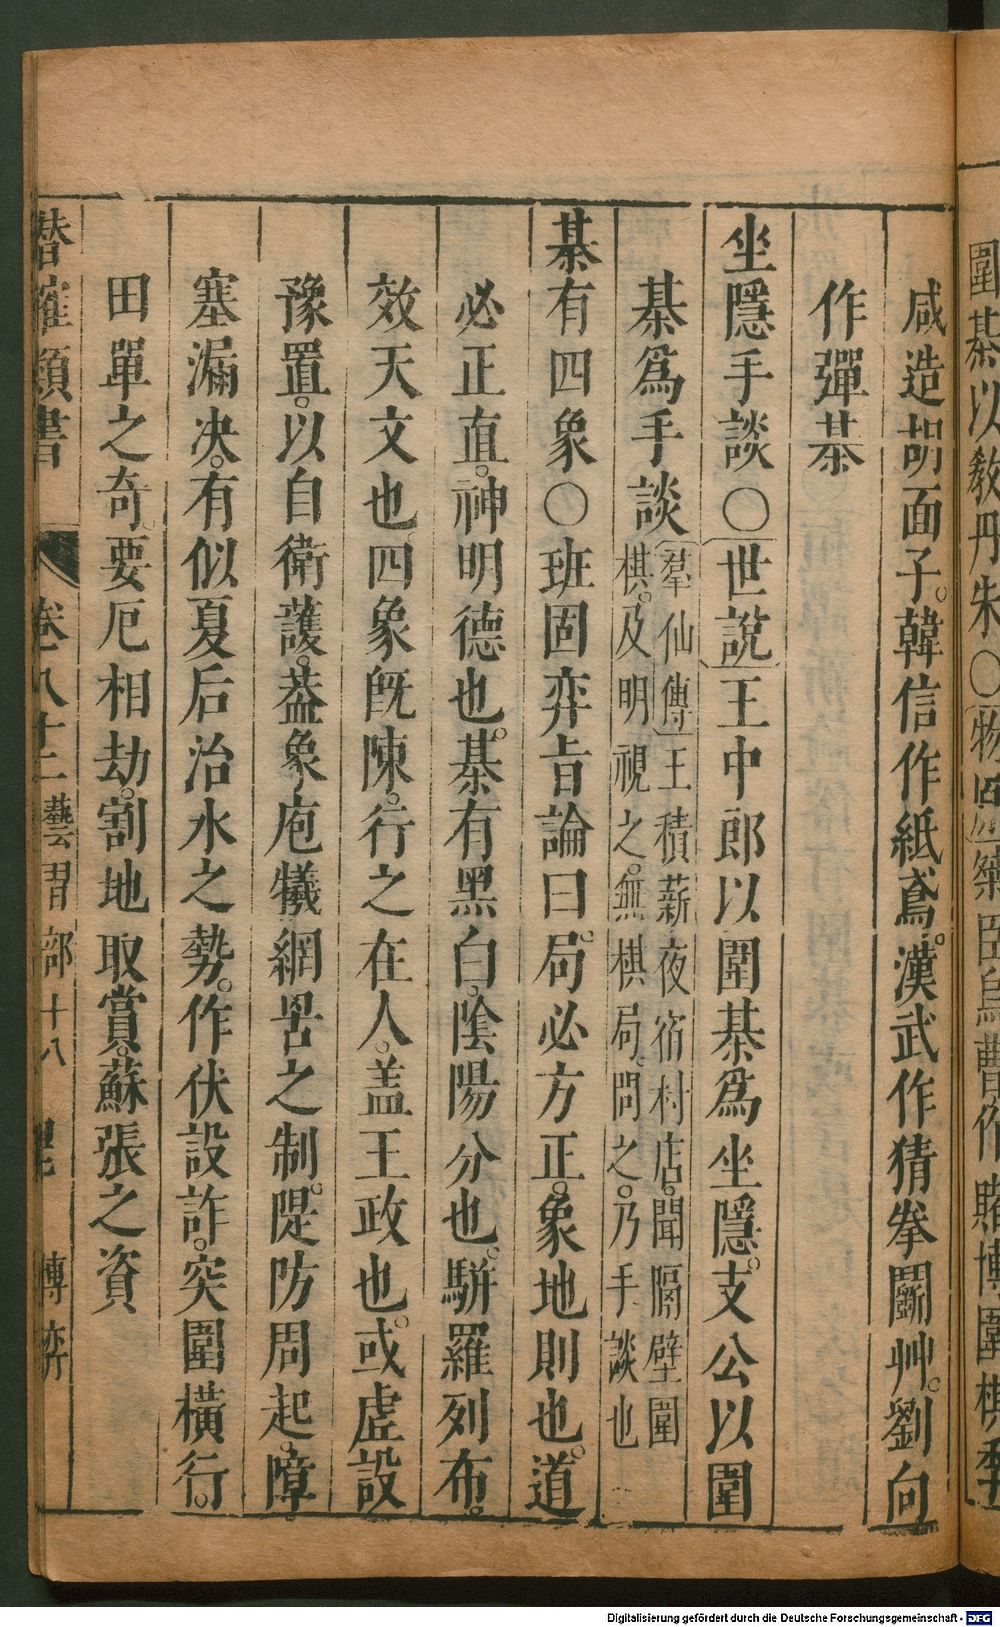 圍棊以敎丹朱〇物原築臣烏曹作賭博圍棋季
咸造胡面子。韓信作紙鳶。漢武作猜拳鬬艸。劉向
作彈棊
坐隱手談〇世說王中郎以圍棊爲坐隱。支公以圍
棊爲手談羣仙傳王積薪夜宿村店。聞隔壁圍
棋。及明視之。無棋局。問之。乃手談也
棊有四象〇班固弈旨論曰。局必方正。象地則也。道
必正直。神明德也。棊有黑白。陰陽分也。駢羅列布。
效天文也。四象旣陳。行之在人。盖王政也。或虛設
豫置。以自衛護。葢象庖犧網罟之制。隄防周起。障
塞漏决。有似夏后治水之勢。作伏設詐。突圍橫行。
田單之奇。要厄相劫。割地取賞。蘇張之資
潛確類書 卷八十二 藝習部十八 博弈
Digitalisierung gefördert durch die Deutsche Forschungsgemeinschaft - DFG